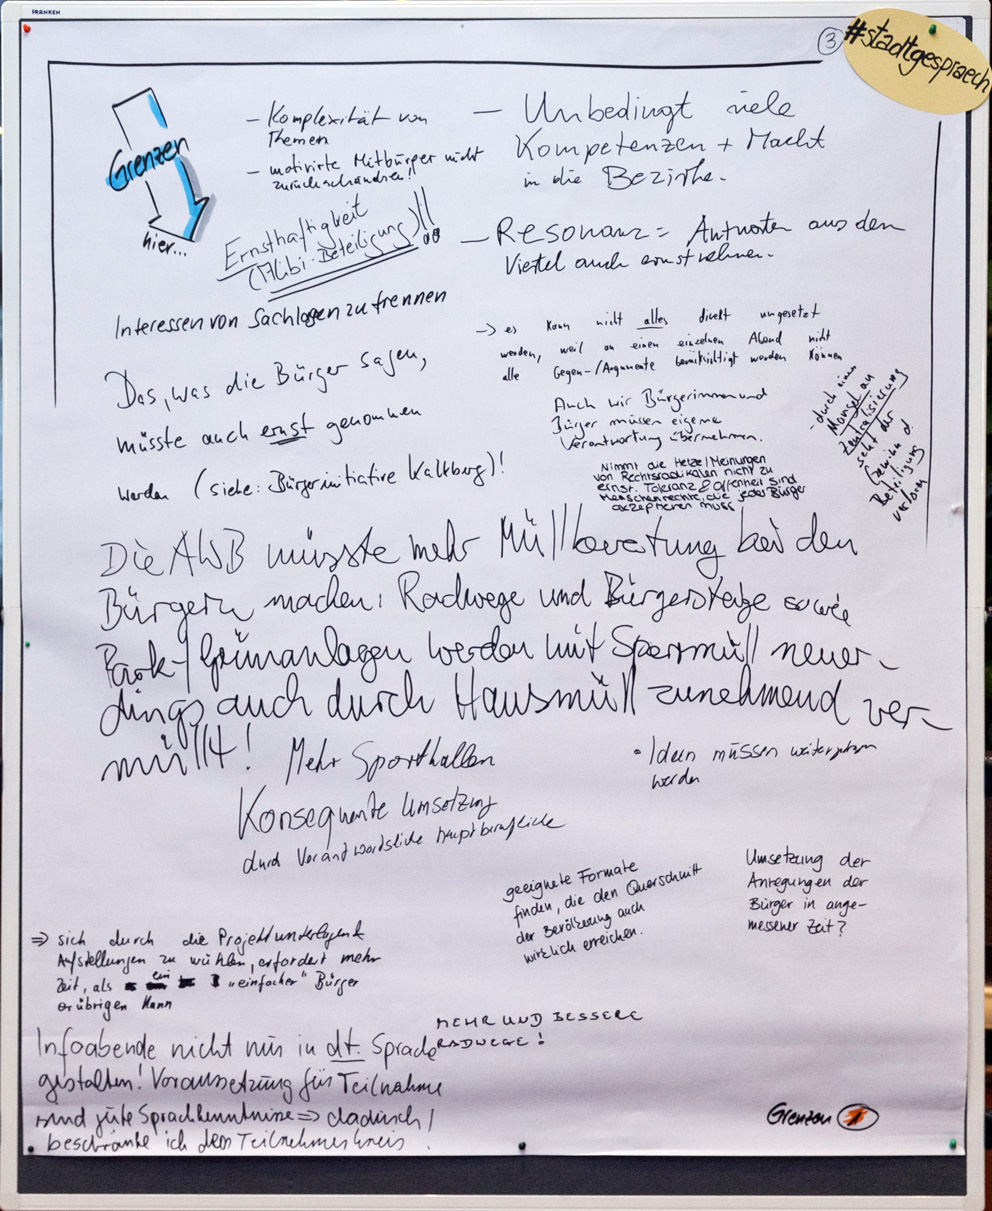 FRANKEN
3
#stadtgespraech
Grenzen
hier...
- Komplexität von
Themen
- motivirte Mitbürger nicht
zurückschrecken!!
Ernsthaftigkeit
(Mülbi-Beteiligung)!!
- Unbedingt viele
Kompetenzen + Macht
in die Bezirke.
- Resonanz = Antworten aus dem
Viertel auch ernst nehmen.
Interessen von Sachlagen zu trennen
-> es kann nicht alles direkt umgesetzt
werden, weil an einen einzelnen Abend nicht
alle Gegen-/Argumente berücksichtigt werden können
Das, was die Bürger sagen,
müsste auch ernst genommen
werden (siehe: Bürgerinitiative Kalkberg)!
Auch wir Bürgerinnen und
Bürger müssen eigene
Verantwortung übernehmen.
- durch einen
Mangel an
Zentralisierung
geht der
d.
Beteiligung
verloren
Nimmt die Hetze/Meinungen
von Rechtsradikalen nicht zu
ernst. Toleranz & Offenheit sind
Menschenrechte, die jeder Bürger
akzeptieren muss!
Die AWB müsste mehr Müllberatung bei den
Bürgern machen: Radwege und Bürgersteige sowie
Park-/Grünanlagen werden mit Sperrmüll neuer-
dings auch durch Hausmüll zunehmend ver-
müllt!
Mehr Sporthallen
• Ideen müssen weitergegeben
werden
Konsequente Umsetzung
durch Verantwortliche hauptberufliche
geeignete Formate
finden, die den Querschnitt
der Bevölkerung auch
wirklich erreichen.
Umsetzung der
Anregungen der
Bürger in ange-
messener Zeit?
=> sich durch die Projektunterlagen &
Aufstellungen zu wühlen, erfordert mehr
Zeit, als ein "einfacher" Bürger
erübrigen kann
MEHR UND BESSERE
RADWEGE!
Infoabende nicht nur in dt. Sprache
gestalten! Voraussetzung für Teilnahme
sind gute Sprachkenntnisse => dadurch
beschränke ich den Teilnehmerkreis!
Grenzen 1